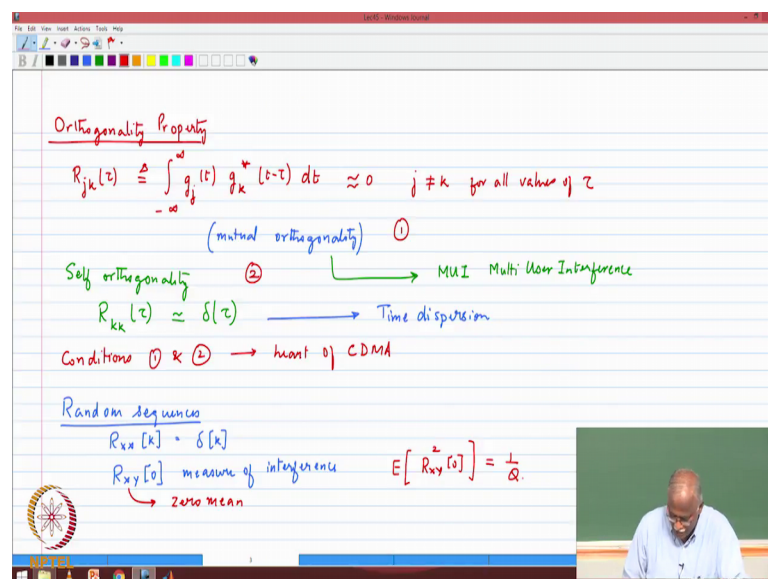 Lec45 - Windows Journal
File Edit View Insert Actions Tools Help
B I
Orthogonality Property
R_jk(τ) ≜ ∫_{-∞}^{∞} g_j(t) g_k^*(t-τ) dt ≈ 0 j ≠ k for all values of τ
(mutual orthogonality) ①
Self orthogonality ② → MUI Multi User Interference
R_kk(τ) ≃ δ(τ) → Time dispersion
Conditions ① & ② → heart of CDMA
Random sequences
R_xx[k] = δ[k]
R_xy[0] measure of interference E[R_xy^2[0]] = 1/Q.
→ zero mean
NPTEL